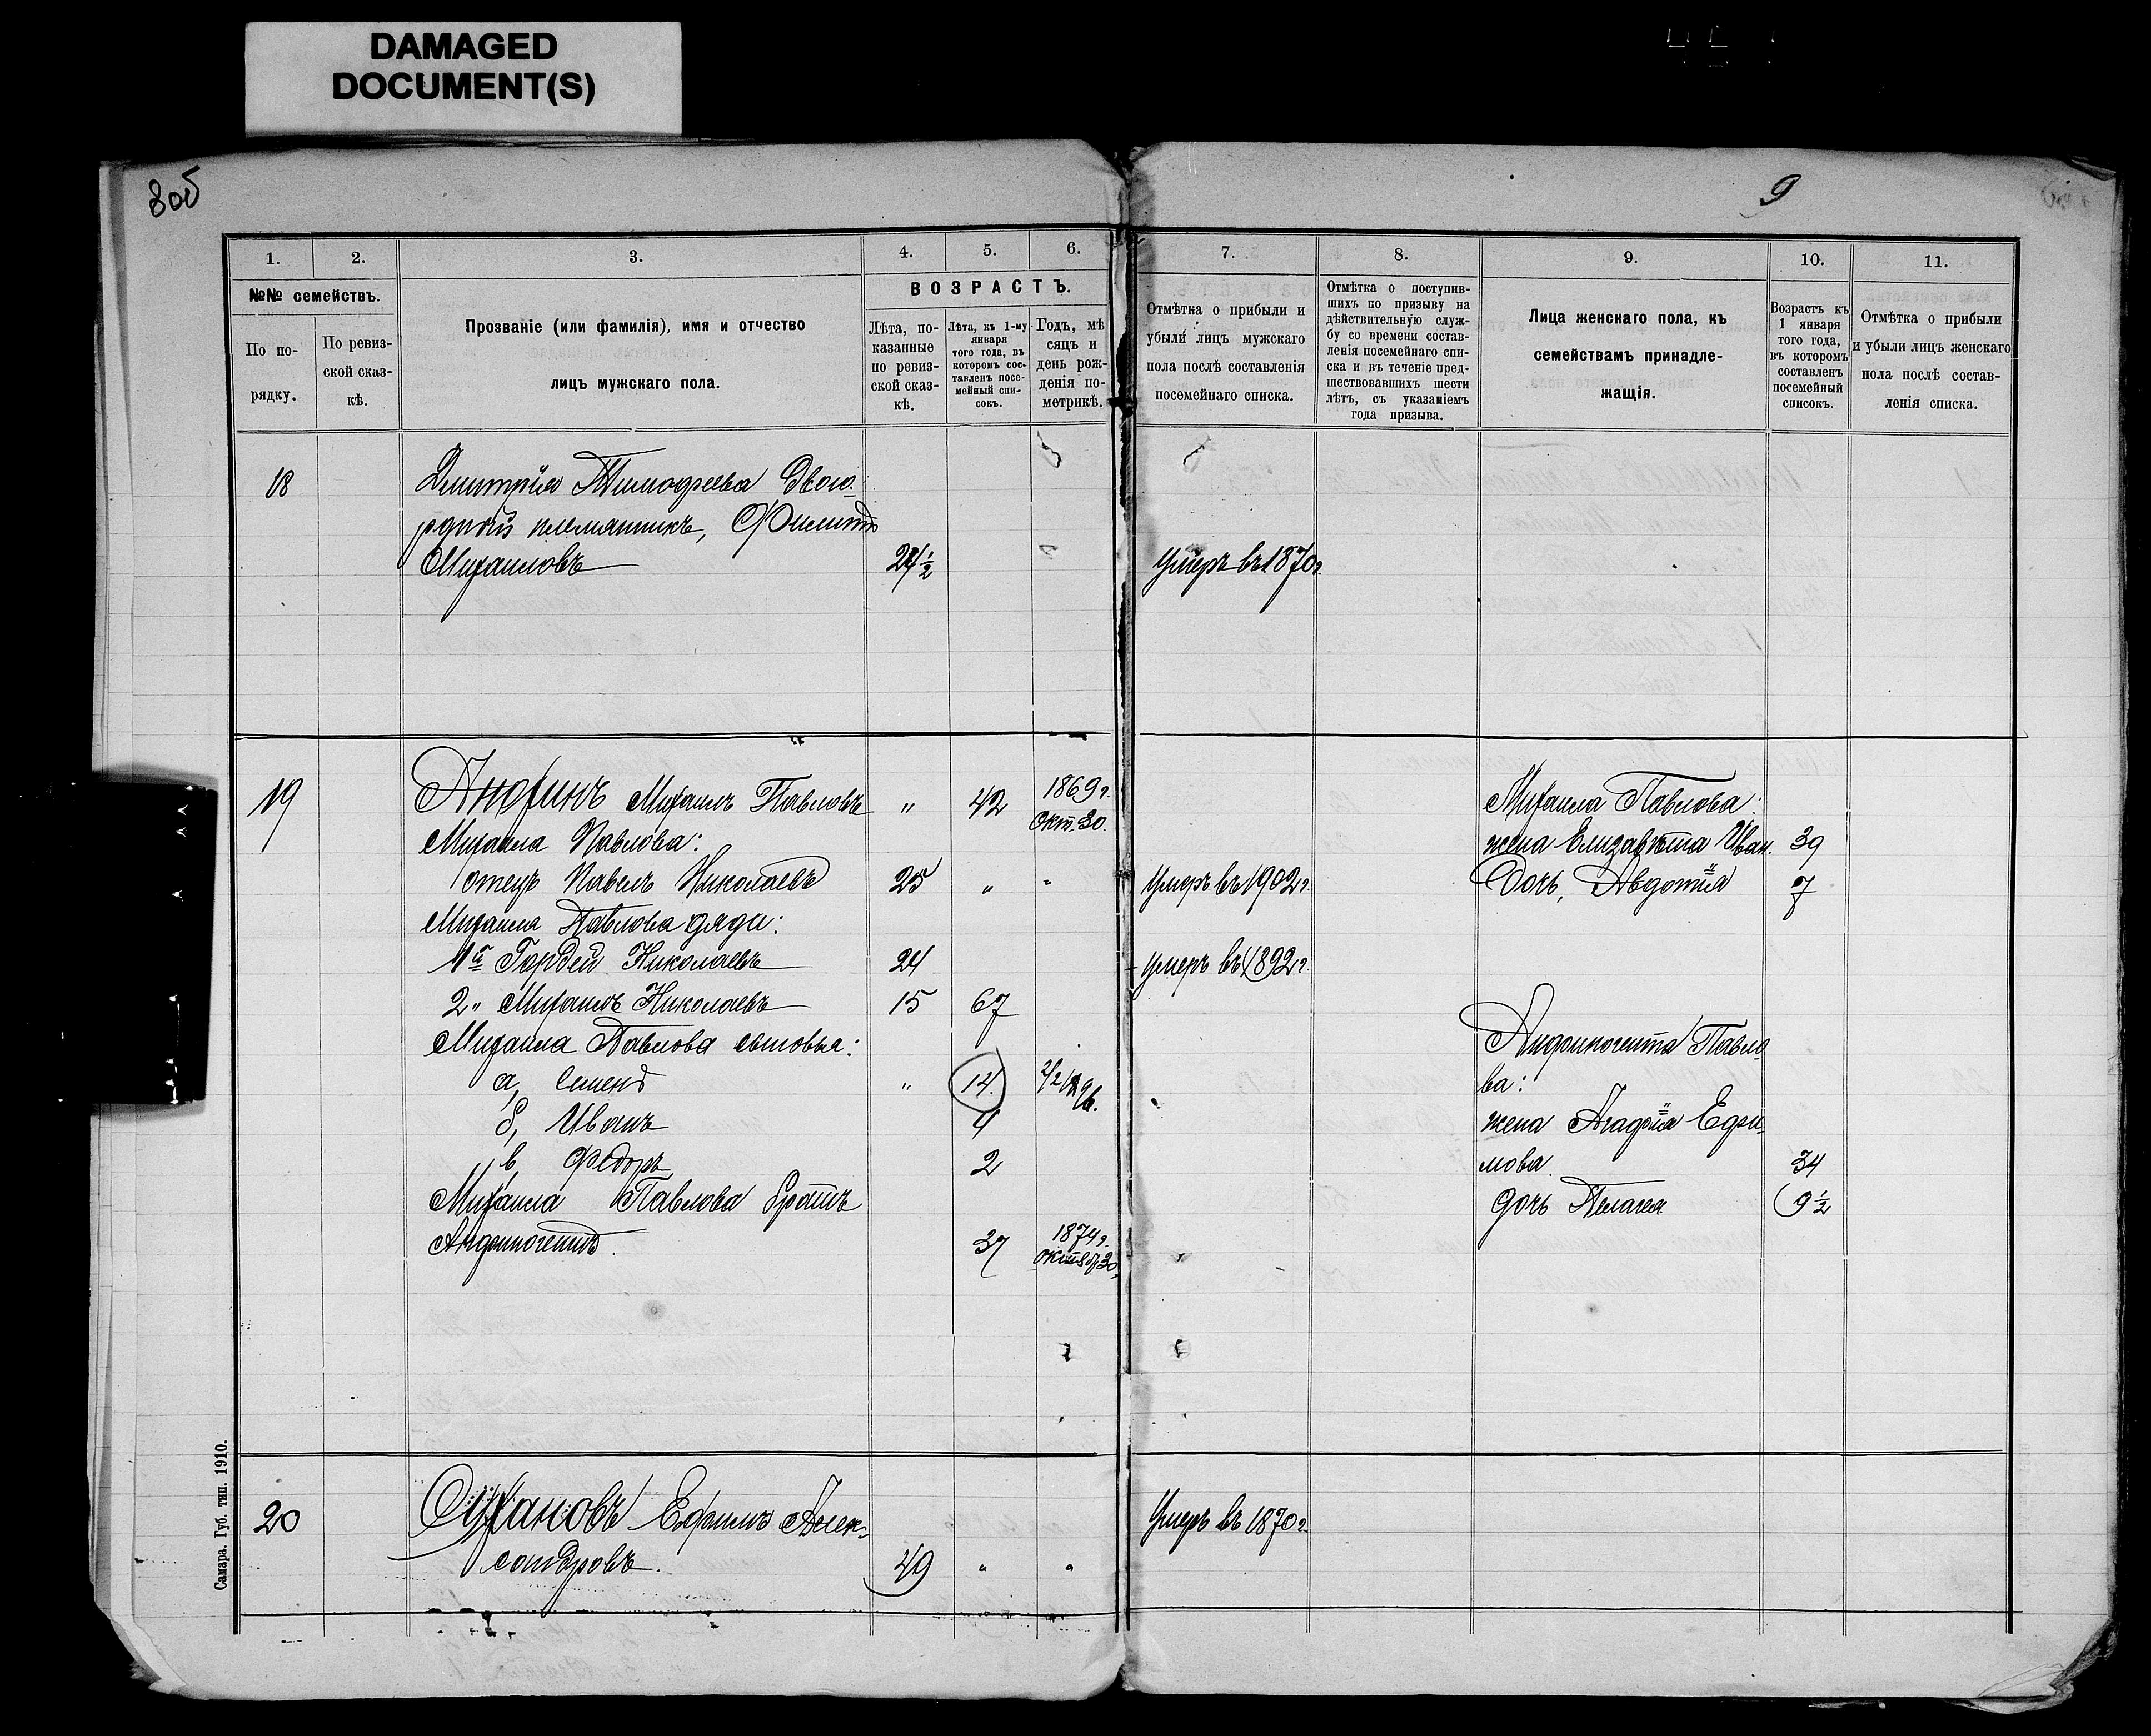 DAMAGED
DOCUMENT(S)
8об
9
1.
2.
3.
4.
5.
6.
№№ семействъ.
По по-
рядку.
По ревиз-
ской сказ-
кѣ.
Прозваніе (или фамилія), имя и отчество
лицъ мужскаго пола.
ВОЗРАСТЪ.
Лѣта, по-
казанные
по ревиз-
ской сказ-
кѣ.
Лѣта, къ 1-му
января
того года, въ
которомъ сос-
тавленъ посе-
мейный спи-
сокъ.
Годъ, мѣ
сяцъ и
день рож-
денія по-
метрикѣ.
7.
8.
9.
10.
11.
Отмѣтка о прибыли и
убыли лицъ мужскаго
пола послѣ составленія
посемейнаго списка.
Отмѣтка о поступив-
шихъ по призыву на
дѣйствительную служ-
бу со времени состав-
ленія посемейнаго спи-
ска и въ теченіе пред-
шествовавшихъ шести
лѣтъ, съ указаніемъ
года призыва.
Лица женскаго пола, къ
семействамъ принадле-
жащія.
Возрастъ къ
1 января
того года,
въ которомъ
составленъ
посемейный
списокъ.
Отмѣтка о прибыли
и убыли лицъ женскаго
пола послѣ состав-
ленія списка.
18
Дмитрія Тимофеева двою-
родный племянникъ, Филиппъ
Михаиловъ 24½ умеръ въ 1870г.
19 Михаилъ Павловъ " 42 1869г. Окт. 30.
Михаила Павлова:
отецъ Павелъ Николаевъ 25 " " умеръ въ 1902г.
Михаила Павлова дяди:
1й Гордей Николаевъ 24 умеръ въ 1892г.
2" Михаилъ Николаевъ 15 67
Михаила Павлова сыновья:
а, Семенъ " 14
б, Иванъ 4
в, Федоръ 2
Михаила Павлова братъ
Анфиногентъ. 37 1874г. октяб 30,
Михаила Павлова:
жена Елизавѣта Иван. 39
Дочь, Авдотія 7
Анфиногента Павло-
ва:
жена Агафія Ефи-
мова. 34
дочь Пелагея 9½
20 Сухановъ Ефимъ Алек-
сандровъ. 49 " " Умеръ въ 1870г.
Самара. Губ. тип. 1910.